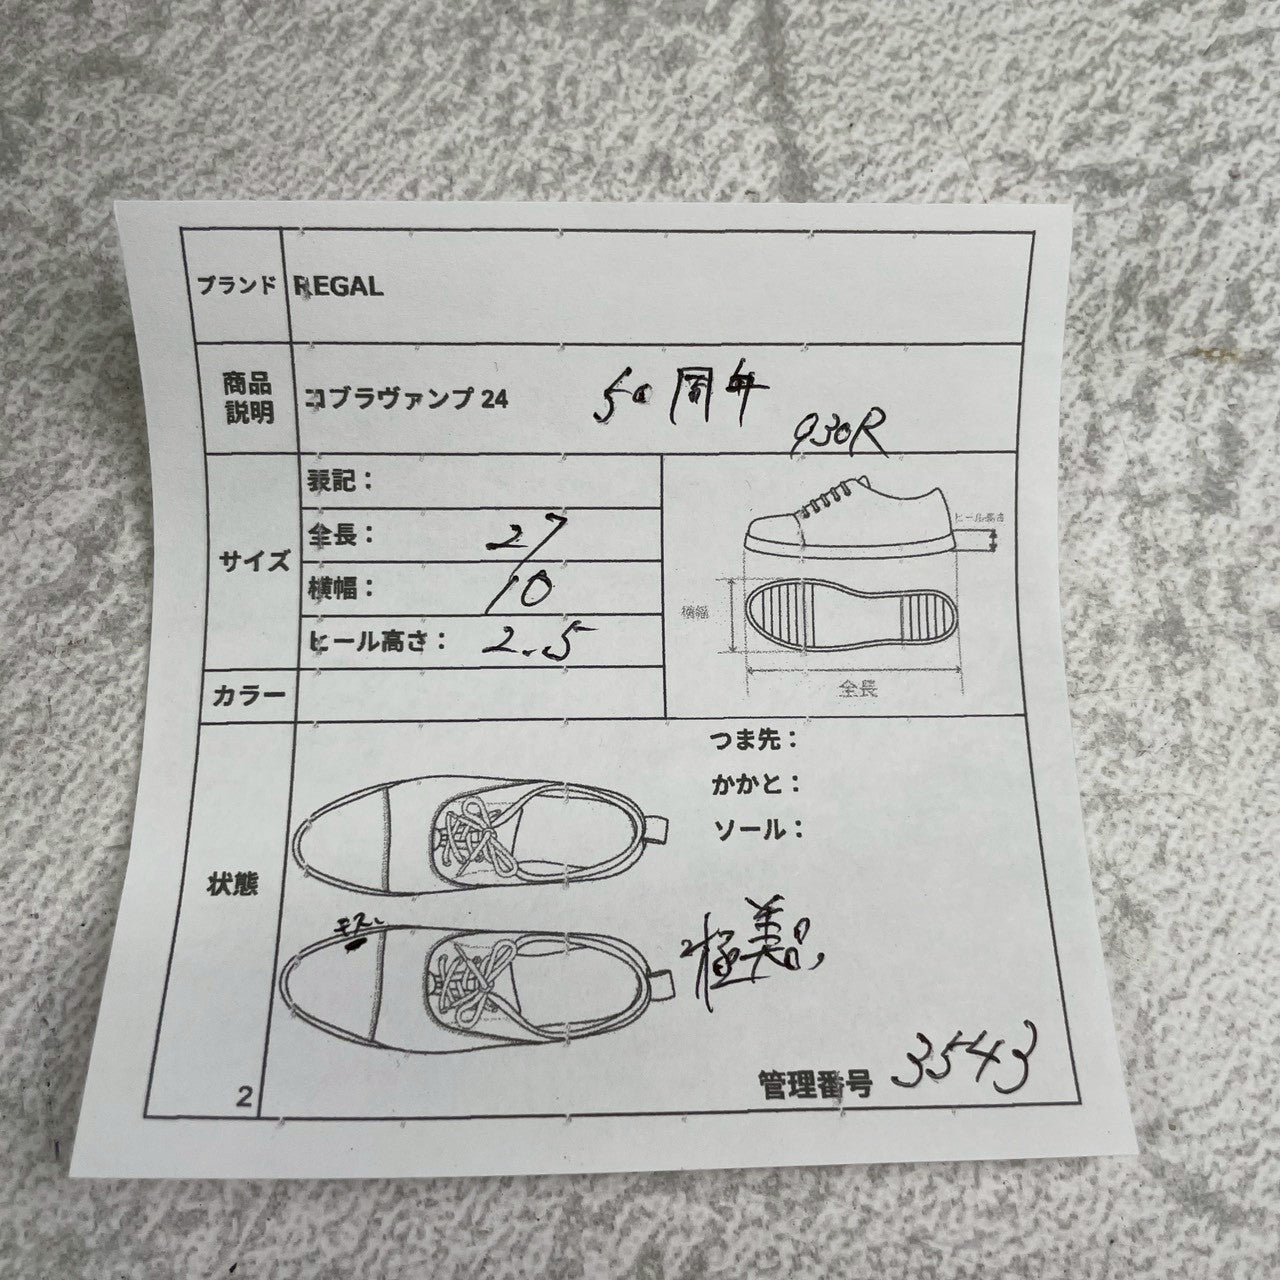 ブランド REGAL
商品説明 コブラヴァンプ 24 50周年
930R
サイズ
表記：
全長： 27
横幅： 10
ヒール高さ： 2.5
ヒール高さ
横幅
全長
カラー
状態
つま先：
かかと：
ソール：
極美品
管理番号 3543
2